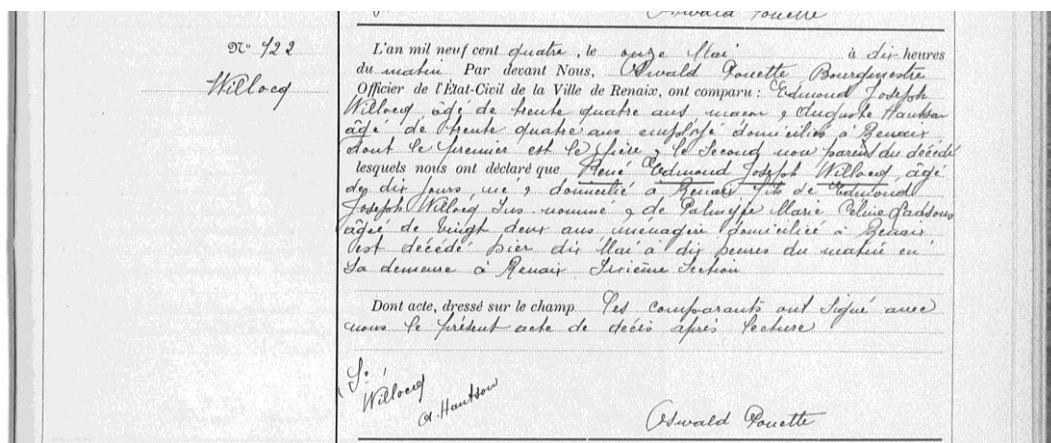 Oswald Ponette
Nº 122
Willocq
L'an mil neuf cent quatre, le onze Mai à dix heures
du matin Par devant Nous, Oswald Ponette Bourgmestre
Officier de l'État-Civil de la Ville de Renaix, ont comparu : Edmond Joseph
Willocq, âgé de trente quatre ans maçon & Auguste Hantson
âgé de trente quatre ans employé domiciliés à Renaix
dont le premier est le père & le second non parent du décédé
lesquels nous ont déclaré que René Edmond Joseph Willocq, âgé
de dix jours, né & domicilié à Renaix fils de Edmond
Joseph Willocq sus nommé & de Marie Celine
âgée de vingt deux ans ménagère domiciliée à Renaix
est décédé hier dix Mai à dix heures du matin en
sa demeure à Renaix Sixième Section
Dont acte, dressé sur le champ Les comparants ont signé avec
nous le présent acte de décès après lecture
Willocq
A. Hantson
Oswald Ponette